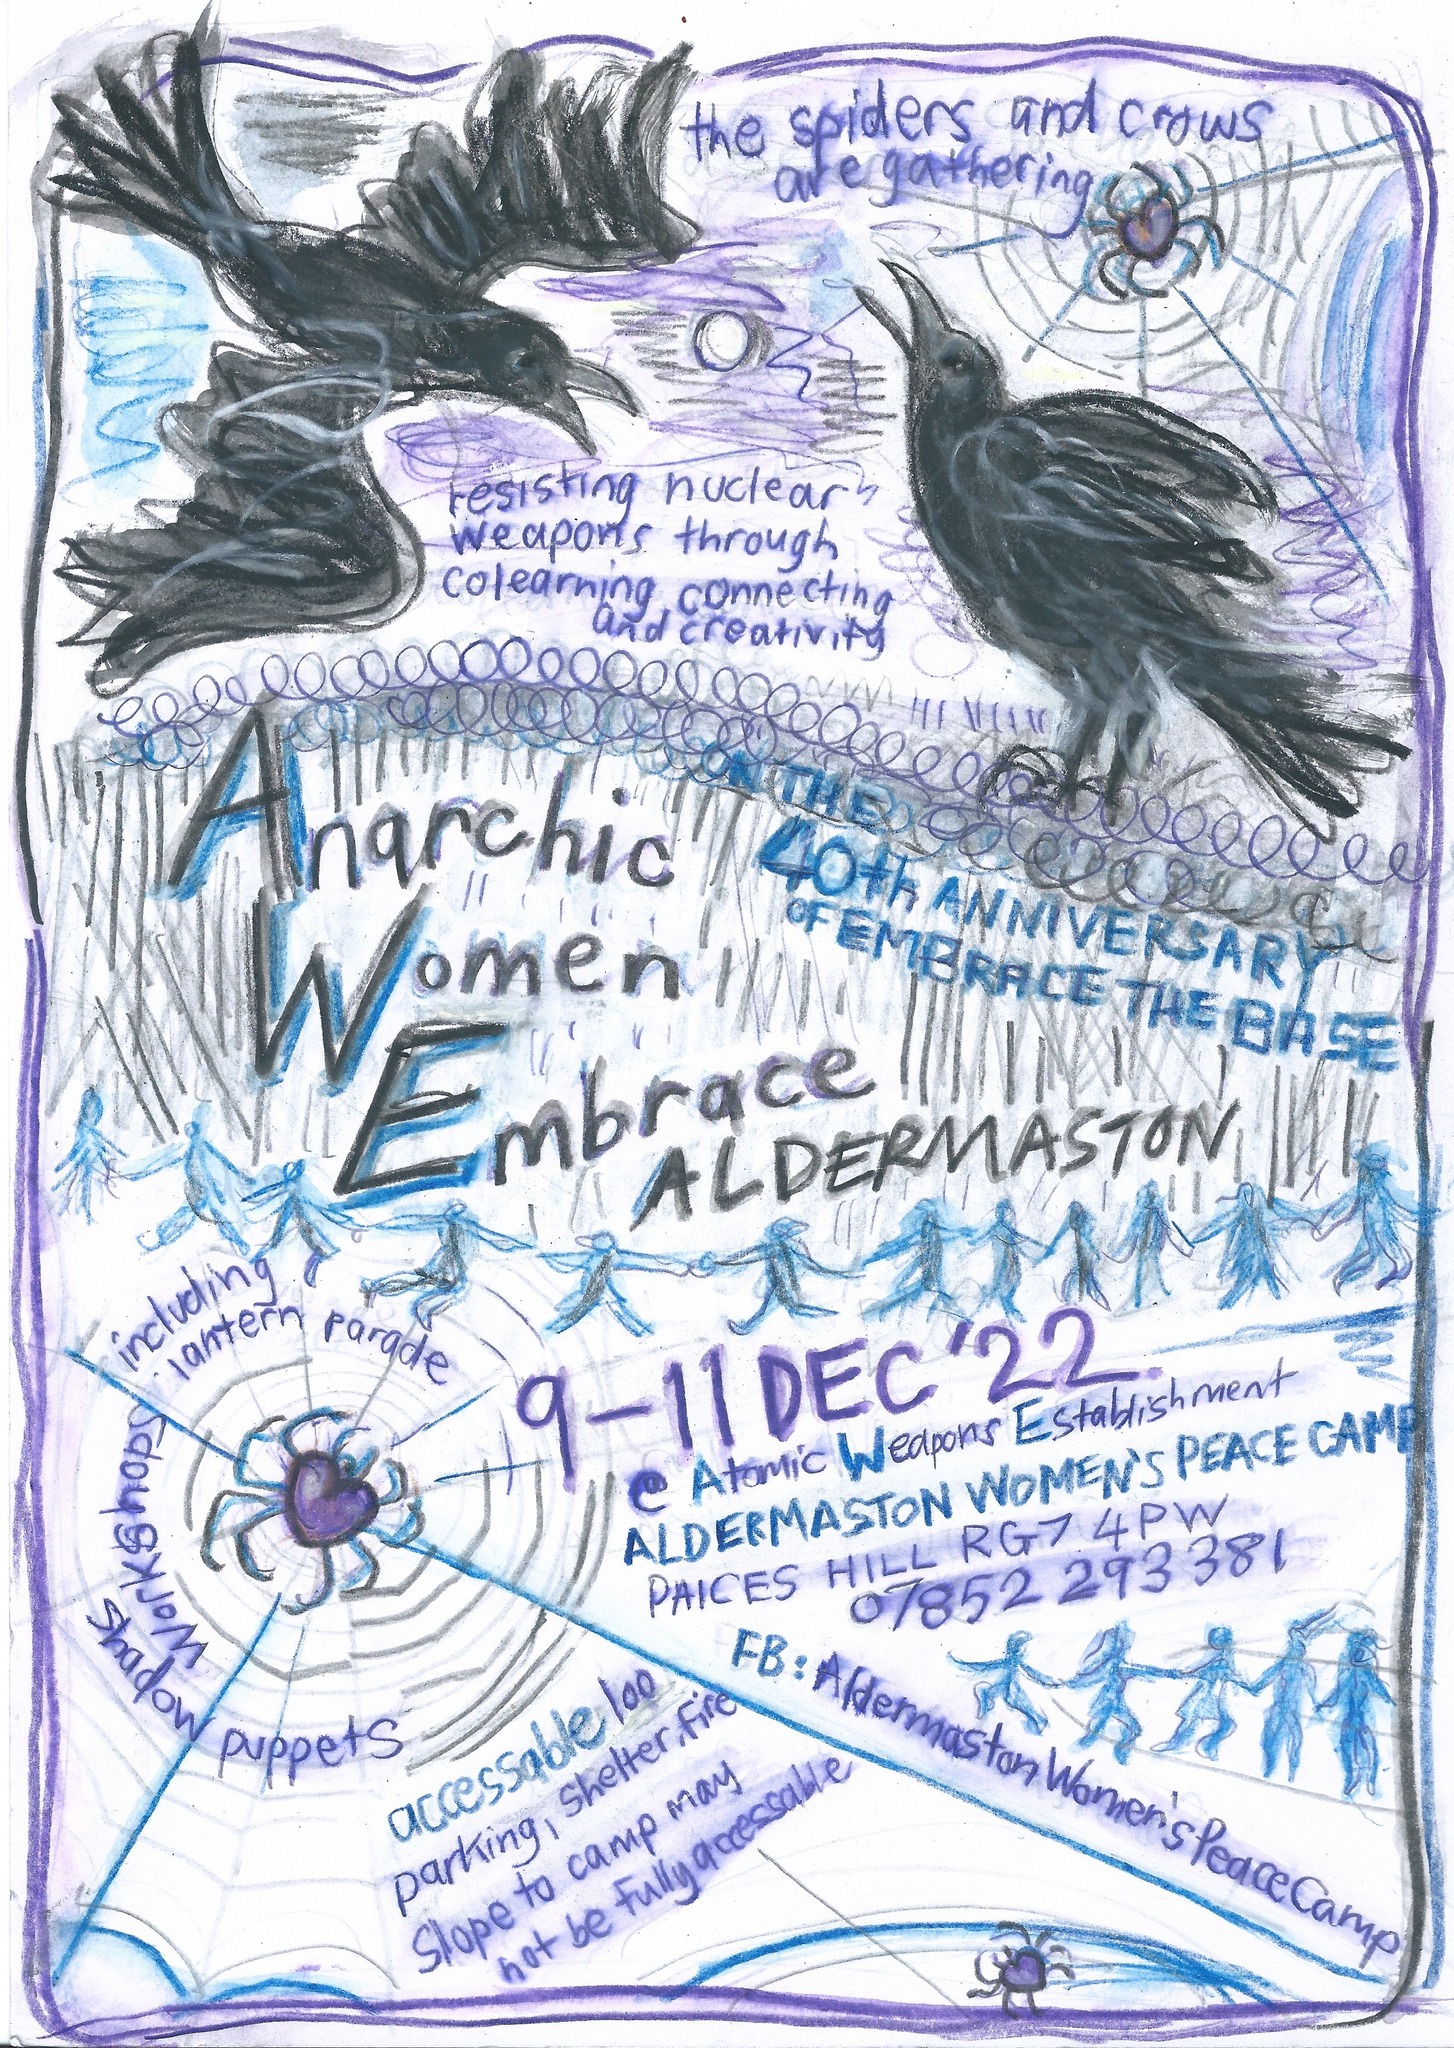 the spiders and crows
are gathering
resisting nuclear
weapons through
colearning connecting
and creativity
Anarchic
Women
Embrace
ALDERMASTON
ON THE
40th ANNIVERSARY
OF EMBRACE THE BASE
including
lantern parade
Workshops
shadow
puppets
9-11 DEC '22
@ Atomic Weapons Establishment
ALDERMASTON WOMEN'S PEACE CAMP
PAICES HILL RG7 4PW
07852 293 381
FB: Aldermaston Women's Peace Camp
accessable loo
parking, shelter, fire
Slope to camp may
not be fully accessable